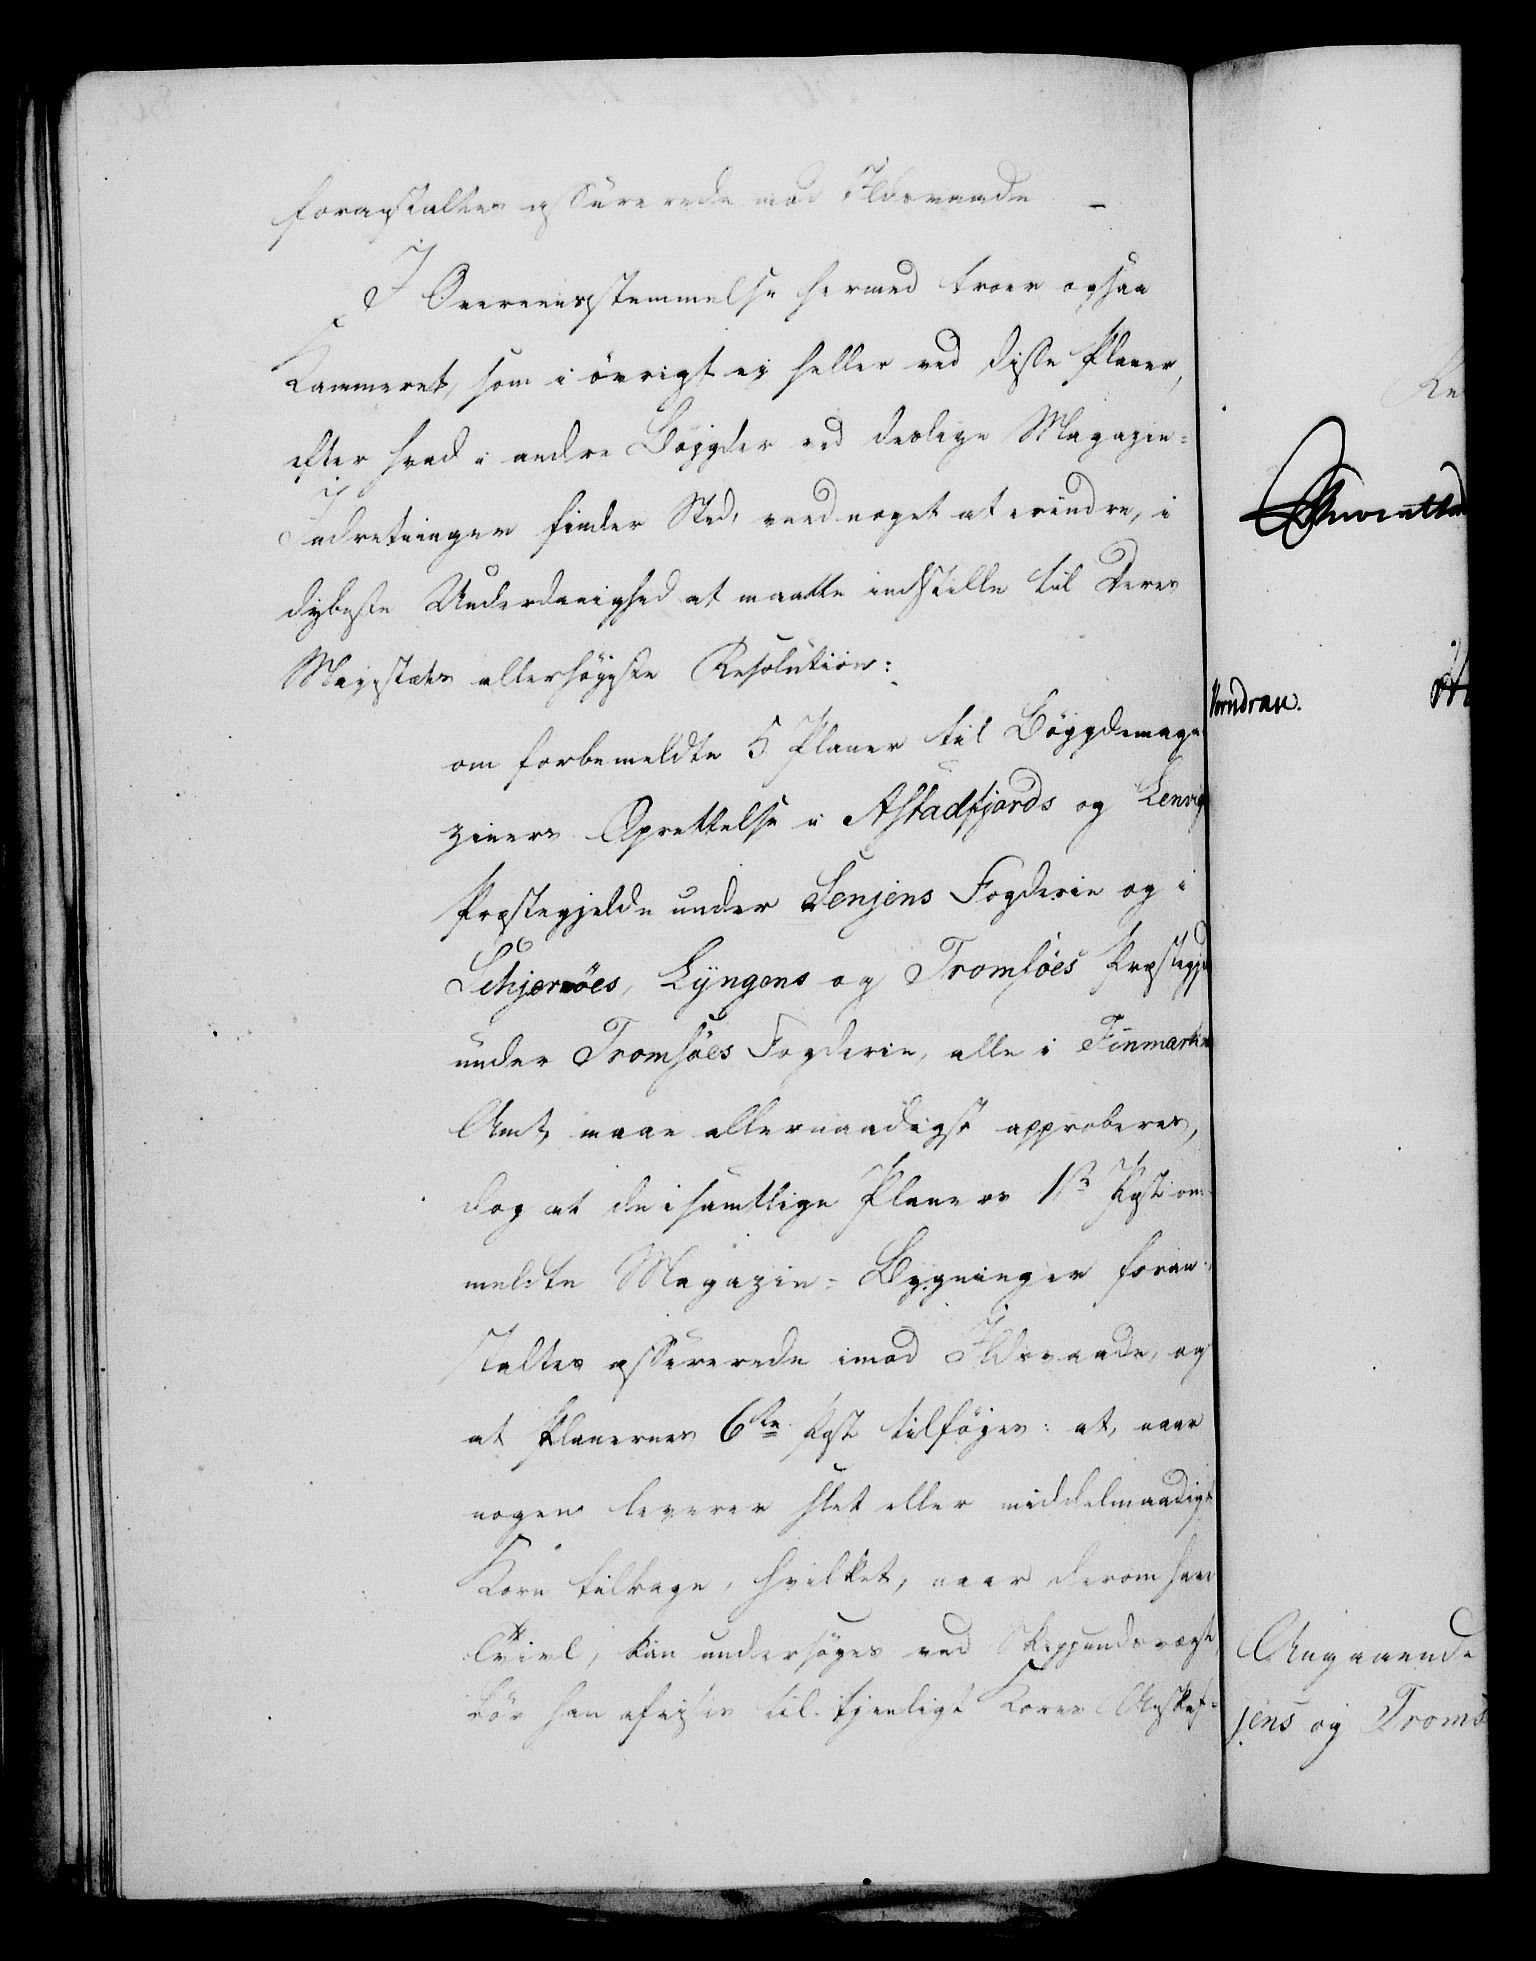 foranstaltes assurerede mod Ildsvaade –
I Overeensstemmelse hermed troer ogsaa
Kammeret, som i övrigt ej heller ved disse Planer,
efter hvad i andre Böygder ved deslige Magazin=
Indretninger finder Sted, veed noget at erindre, i
dybeste Underdanighed at maatte indstille til Deres
Majestæts allerhöyeste Resolution:
om forbemeldte 5 Planer til Böygdemaga
ziners Oprettelse i Astadfjords og Lenvigs
Præstegjelde under Senjens Fogderie og i
Schjervöes, Lyngens og Tromsöes Præstegje
under Tromsöes Fogderie, alle i Finmarkens
Amt, maae allernaadigst approberes,
dog at de i samtlige Planers 1ste Post om=
meldte Magazin=Bygninger foran=
staltes assurerede imod Ildsvaade, og
at Planernes 6te Post tilföjes: at, naar
nogen leverer slet eller middelmaadigt
Korn tilbage, hvilket, naar derom haves
Tvivl, kan undersöges ved Skippundsvægt,
bör han afvises til tjenligt Korns Anskaf=
Angaaende
jens og Troms